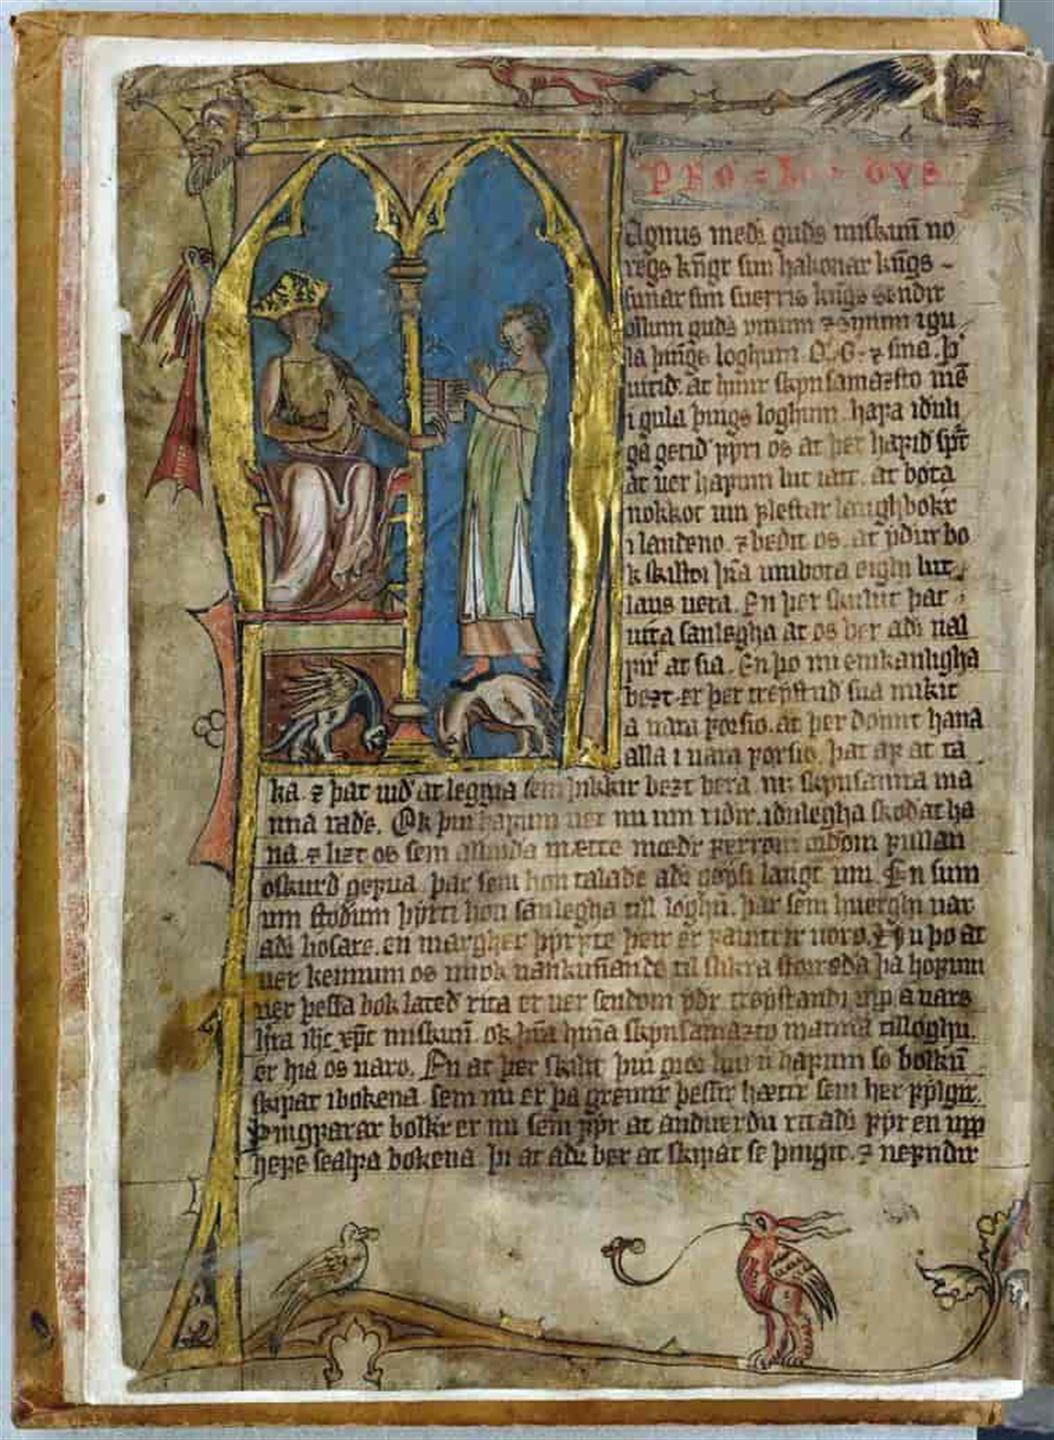 PRO LO GVS
Agnus með guds miskun̄ no
regs kn̄gr sun hakonar kn̄gs
sunar sun suerris kn̄gs sendir
ollum guds vinum ⁊ synum i gu
la þings loghum Q. G. ⁊ sina. þ̅
uitid. at hinir skynsamazsto me̅
i gula þings loghum. hafa iðuli
ga gerid fyri os at þer hafid spr̄t
at uer hafum lut iatt. at bøta
nokkot um flestar laughbøkr
i landeno. ⁊ bedit os. at yður bo
k skilldi h̅a umbota eighi lut
laus uera. En þer skulut þar
uita sanlegha at os ber adr uel
fir̅ at sia. En þo nu einkanligha
bezt er þer treystud sua mikit
a uara forsio. at þer domit hana
alla i uara forsio. þat af at ta
ka. ⁊ þat uið at leggia sem þikkir bezt bera. m; skynsamra ma
nna rade. Ok þui hafum uer nu um riðir. iðulegha skoðat ha
na. ⁊ lizt os sem allmiðá mætte mædr ferrom orðom fullan
oskurð gefua. þar sem hon talade adr gøysi langt um. En sum
um stoðum þyrti hon sanlegha till loghu. þar sem huerghi uar
adr liosare. en margher fyrste þeir er fauitrir uoro. Nu þo at
uer kennum os miok uankunnande til slikra storreða þa hofum
uer þessa bok lateð rita er uer sendom yðr treystandi upp a uars
h̅ra ih̅c xp̅c miskun̅. ok h̅na hin̅a skynsamazto manna tilloghu.
er hia os uaro. En at þer skilit þui giør hui u̅ hafum so bolku̅
skipat i bokena. sem nu er þa greinir þessir hættir sem her fylgir.
Þingfarar bolkr er nu sem fyr at anduerðu ritaðr fyr en upp
hefe sealfa bokena. þui at adr ber at skipat se þingit. ⁊ nefndir